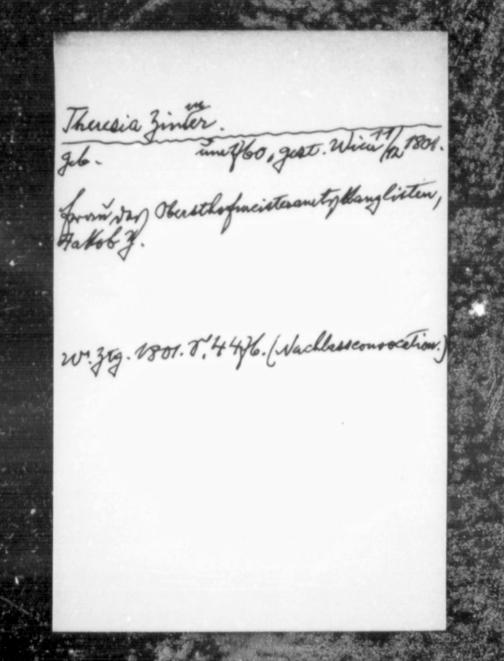 Theresia Zinter.
geb. um 1760, gest. Wien 11/12 1801.
Frau des Obersthofmeisteramtskanzlisten,
Jakob Z.
W. Ztg. 1801. S. 4476. (Nachlassconvocation.)